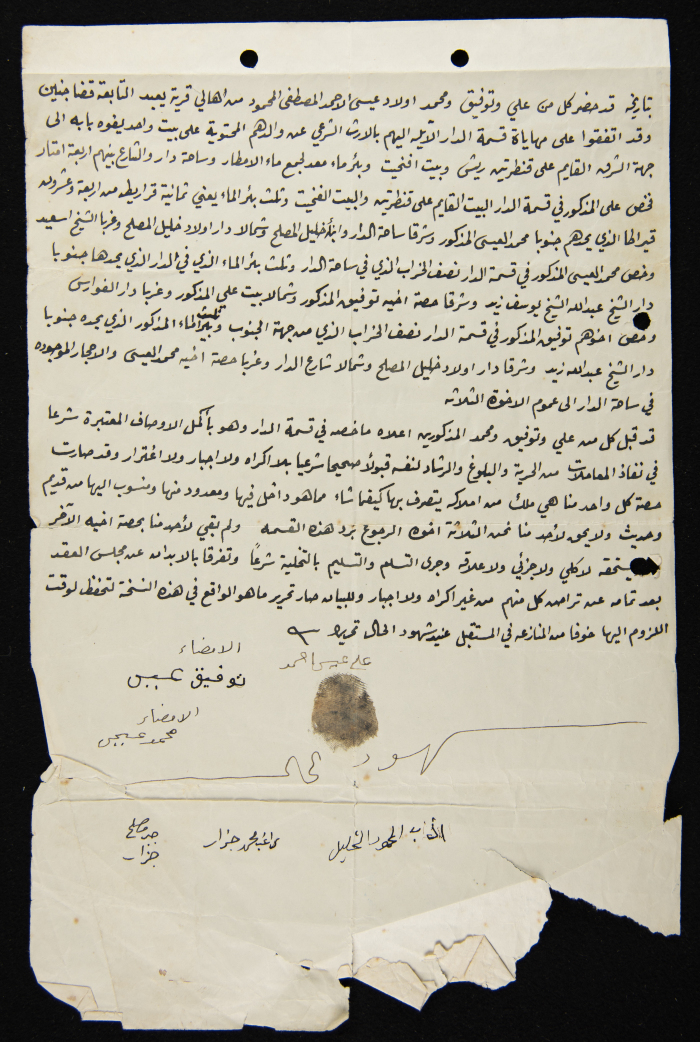 بتاريخه قد حضر كل من علي وتوفيق ومحمد اولاد عيسى الاحمد المصطفى المحمود من اهالي قرية يعبد التابعة قضا جنين
وقد اتفقوا على مهاياة قسمة الدار الآيله اليهم بالارث الشرعي عن والدهم المحتوية على بيت واحد يفوه بابه الى
جهة الشرق القايم على قنطرتين ريش وبيت افنجيت وبئر ماء معد لجمع ماء الامطار وساحة دار والشارع بينهم اربعة امتار
فخص علي المذكور في قسمة الدار البيت القايم على قنطرتين والبيت الفنجيت وثلث بئر الماء يعني ثمانية قراريط من اربعة وعشرون
قيراطا الذي يحدهم جنوبا محمد العيسى المذكور وشرقا ساحة الدار خليل المصلح وشمالا دار اولاد خليل المصلح وغربا الشيخ اسعيد
وخص محمد العيسى المذكور في قسمة الدار نصف الخراب الذي في ساحة الدار وثلث بئر الماء الذي في الدار الذي يحدها جنوبا
دار الشيخ عبدالله الشيخ يوسف زيد وشرقا حصة اخيه توفيق المذكور وشمالا بيت علي المذكور وغربا دار الفوارس
وخص اخوهم توفيق المذكور في قسمة الدار نصف الخراب الذي من جهة الجنوب وثلث بئر الماء المذكور الذي يحده جنوبا
دار الشيخ عبدالله زيد وشرقا دار اولاد خليل المصلح وشمالا شارع الدار وغربا حصة اخيه محمد العيسى والاحجار الموجوده
في ساحة الدار الى عموم الاخوة الثلاثه
قد قبل كل من علي وتوفيق ومحمد المذكورين اعلاه ما خصه في قسمة الدار وهو بأكمل الاوصاف المعتبرة شرعا
في نفاذ المعاملات من الحرية والبلوغ والرشاد لنفسه قبولاً صحيحا شرعيا بلا اكراه ولا اجبار ولا اغترار وقد صارت
حصة كل واحد منا هي ملك من املاكه يتصرف بها كيفما شاء مما هو داخل فيها ومعدود منها ومنسوب اليها من قديم
وحديث ولا يحق لأحد منا نحن الثلاثة اخوه الرجوع برد هذه القسمه ولم بقي لأحد منا بحصة اخيه الآخر
يستحقه لا كلي ولا جزئي ولا علاقة وجرى التسلم والتسليم بالتخلية شرعاً وتفرقا بالابدان عن مجلس العقد
بعد تمامه عن تراض كل منهم من غير اكراه ولا اجبار وللبيان صار تحرير ما هو الواقع في هذه النسخة لتحفظ لوقت
اللزوم اليها خوفا من المنازعه في المستقبل عند شهود الحال تحريرا
الامضاء
توفيق عيسى
علي عيسى احمد
الامضاء
محمد عيسى
شهود الحال
المحمود الخليل
محمد جرار
جرار